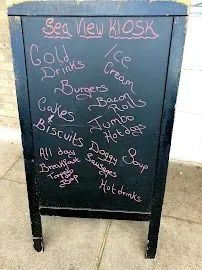 Sea View KIOSK
Cold
Drinks
Ice
Cream
Burgers
Bacon
Rolls
Cakes
&
Biscuits
Jumbo
Hotdogs
All day
Breakfast
Bap
Doggy
Sausages
Soup
Hot drinks